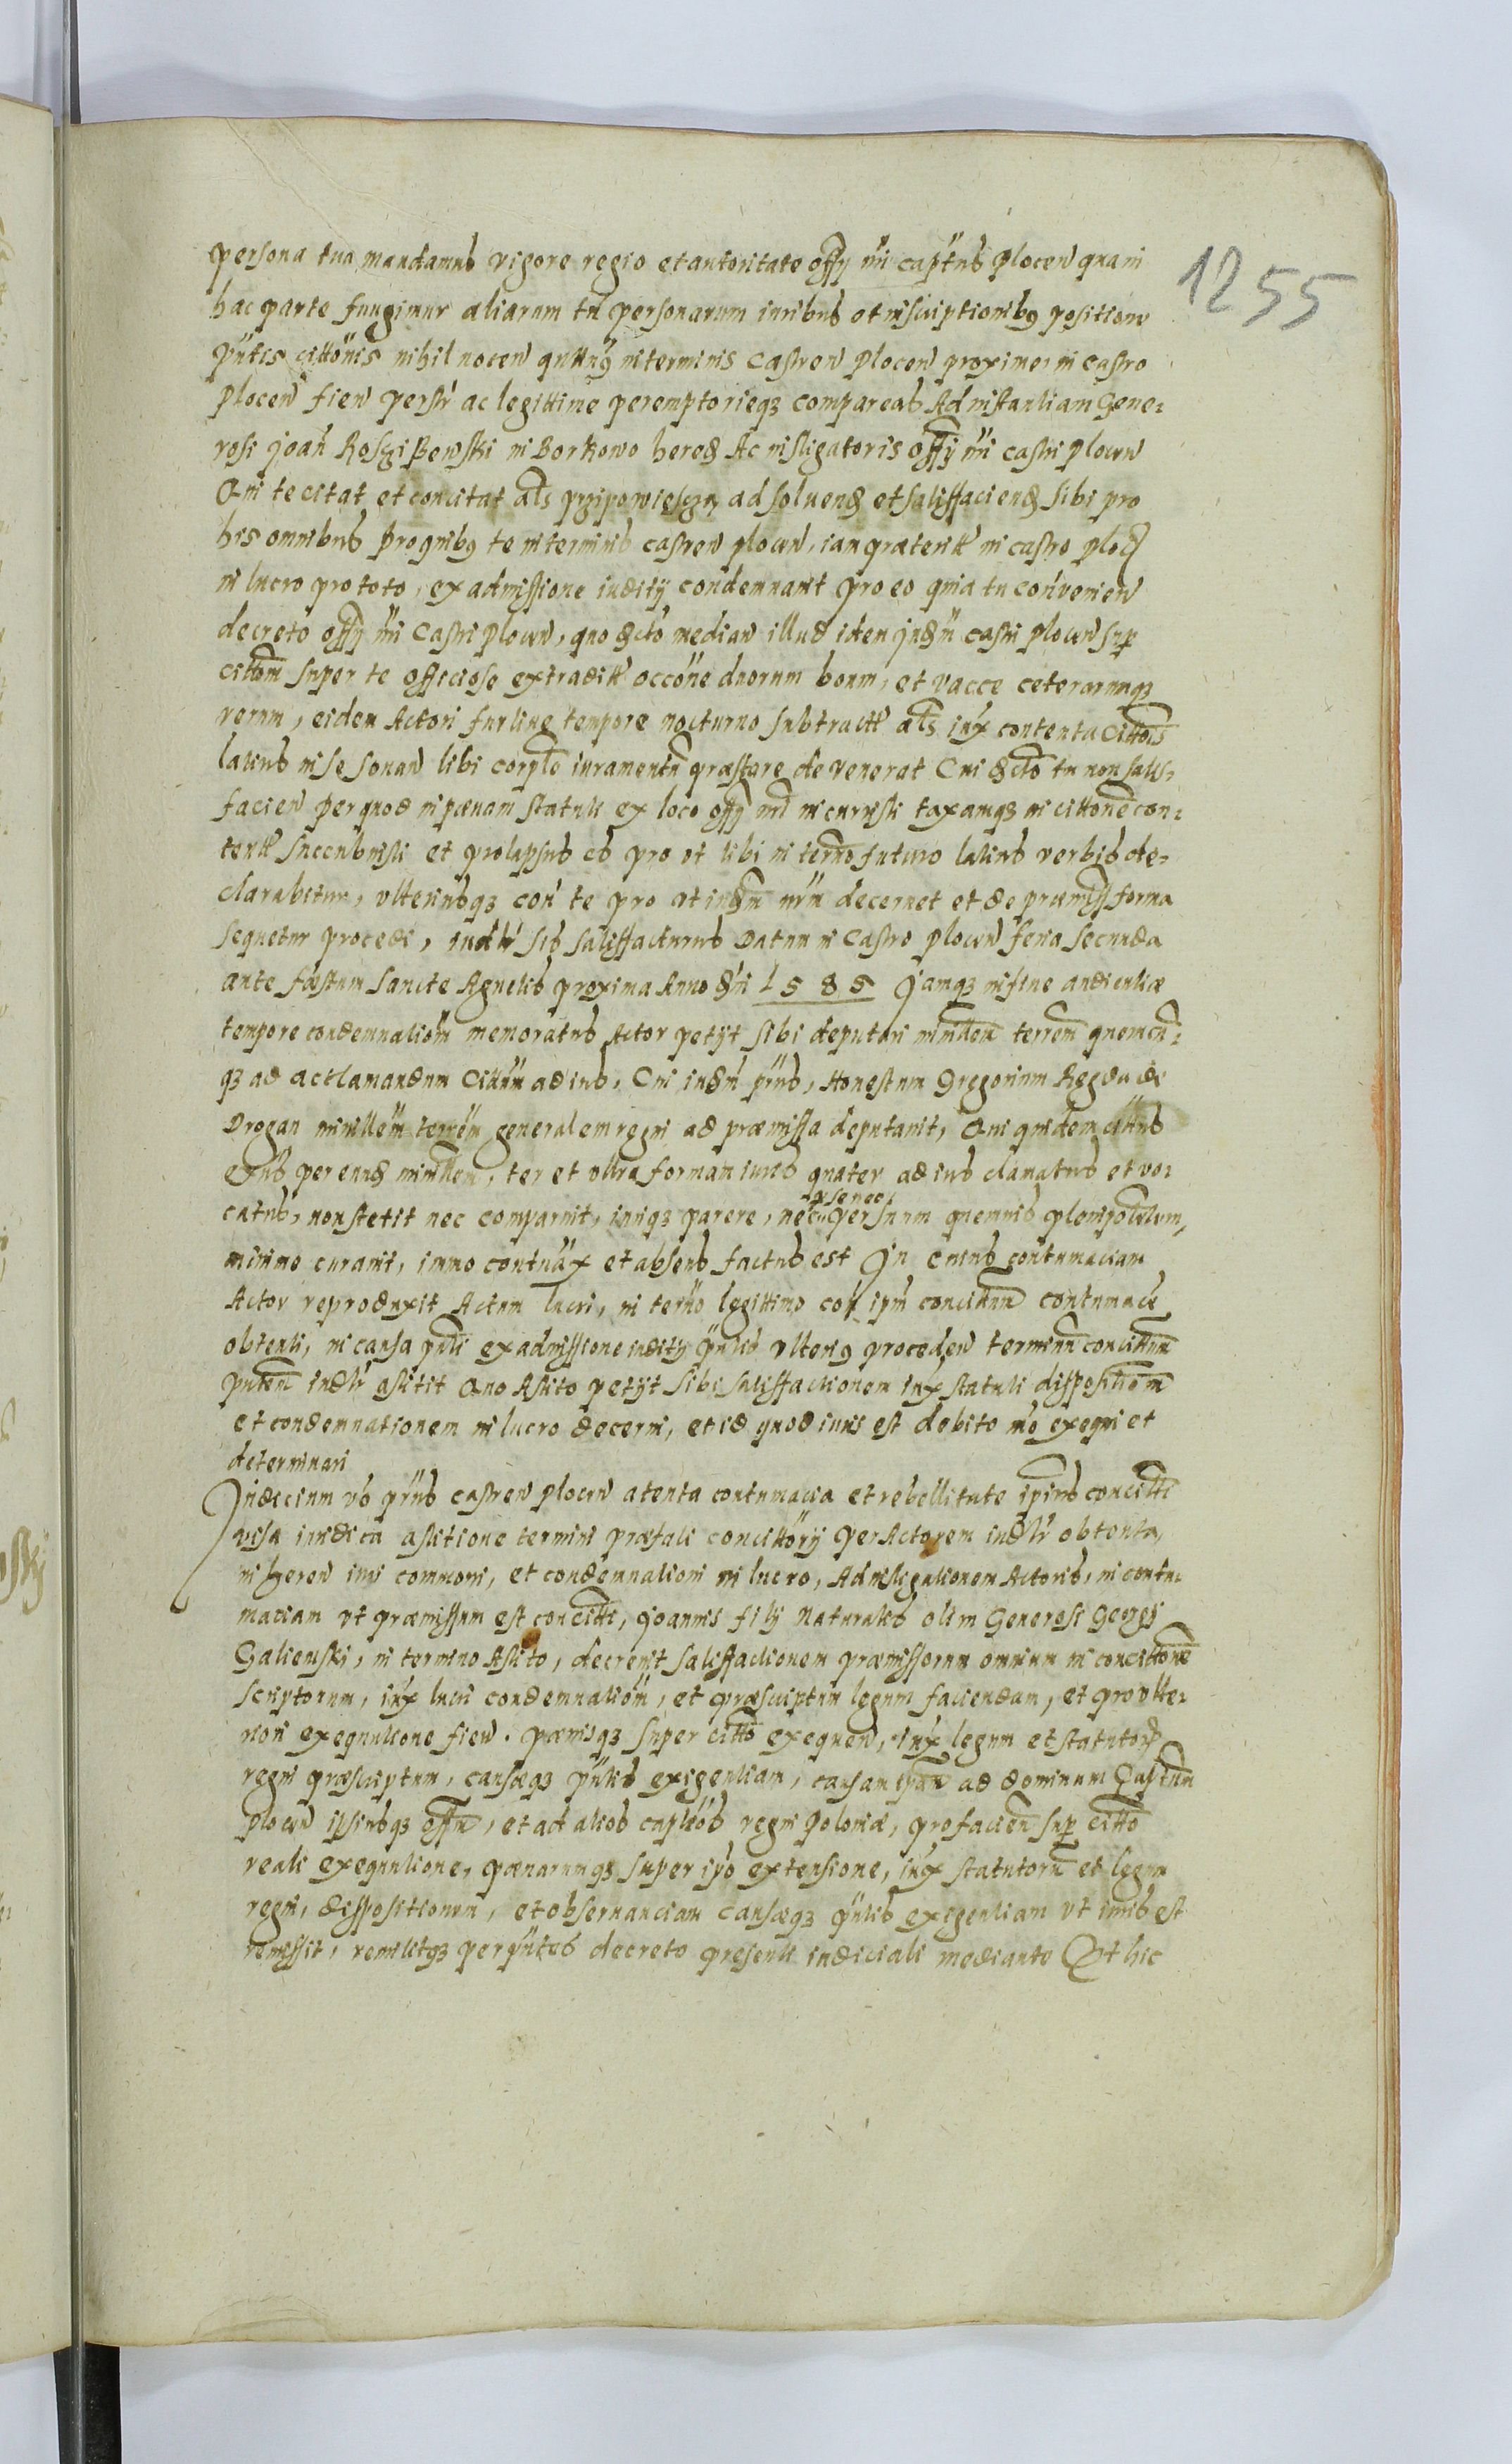 1255
persona tua mandamus vigore regio et autoritate offy nri captus plocen qua in
hac parte fungimur aliarum tn personarum iuribus et inscriptionibus positione
pntis cittonis nihil nocen quttnus in terminis Castren plocen proxime in castro
plocen fien perslr ac legittime peremptorieqz compareas Ad instantiam Gene:
rosi Joan Rosciszewski in Borkowo hered Ac instigatoris offy nri castri plocen
Qui te citat et concitat als przipowiescza ad soluend et satisffaciend sibi pro
his omnibus pro quibus te in terminis castren plocen, iam præteritt in castro ploc
in lucro pro toto, ex admissione iudity condemnavit pro eo quia tu convenien
decreto offy nri Castri plocen, quo dcto median illud idem Judm castri plocen sup
cittom super te officiose extraditt occone duorum boum, et vacce ceterarumqz
rerum, eidem Actori furtive tempore nocturno subtractt als iux contenta Cittois
latius in se sonan tibi corple iuramentu præstare devenerat Cui dcto tu non satis:
facien per quod in pænam statuti ex loco offy nri incurristi taxamqz in cittone con:
tentt succubuisti et prolapsus es pro ut tibi in termo futuro latius verbis de:
clarabitur, ulteriusqz con te pro ut iudm nrm decernet et de præmiss forma
sequetur procedi, iudlr sis satisffacturus Datum in Castro plocen feria secunda
ante fæstum sancte Agnetis proxima Anno dni 1585 Jamqz in fine audientiæ
tempore condemnationm memoratus Actor petyt sibi deputari ministlem terrem quemcu:
qz ad acclamandum Cittum ad ius, Cui iudm pns, Honestum Gregorium Regda de
Drogan ministlem terrem generalem regni ad præmissa deputavit, Qui quidem cittus
exns per eund ministlem, ter et ultra formam iuris quater ad ius clamatus et vo:
catus, non stetit nec comparuit, iuriqz parere, nec per se nec per suum quemvis plenipotetem,
minime curavit, immo contumax et absens factus est In cuius contumaciam
Actor reproduxit Actum lucri, in termo legittimo con ipm concittum contumace
obtenti, in causa pnti ex admissione iudity pntis ulterius proceden terminu concittum
pntem iudlr astitit Quo Astito petyt sibi satisffactionem iux statuti dispositionem
et condemnationem in lucro decerni, et id quod iuris est debito mo exequi et
determinari
Judicium vo pns castren plocen atenta contumacia et rebellitate ipius concitti
visa iuridica astitione termini præfati concittory per Actorem iudlr obtenta,
inheren iuri communi, et condemnationi in lucro, Ad instigationem Actoris, in contu:
maciam ut præmissum est concitti, Joannis fily naturalis olim Generosi Georgy
Galienski, in termino Astito, decrevit satisffactionem præmissorum omnium in concittone
scriptorum, iux lucri condemnationm, et præscriptum legum faciendam, et pro ulte:
riori exequutione fien. pænisqz super citto exequen, iux legum et statutor
regni præscriptum, causæqz pntis exigentiam, causam ipam ad dominum Captum
plocen ipsiusqz offm, et ad alios captos regni Poloniæ, pro facien sup citto
reali exequutione, pænarumqz super ipo extensione, iux statutoru et legum
regni, dispositionem, et observanciam causæqz pntis exigentiam ut iuris est
remissit, remititqz per pntes decreto presenti iudiciali mediante Et hic